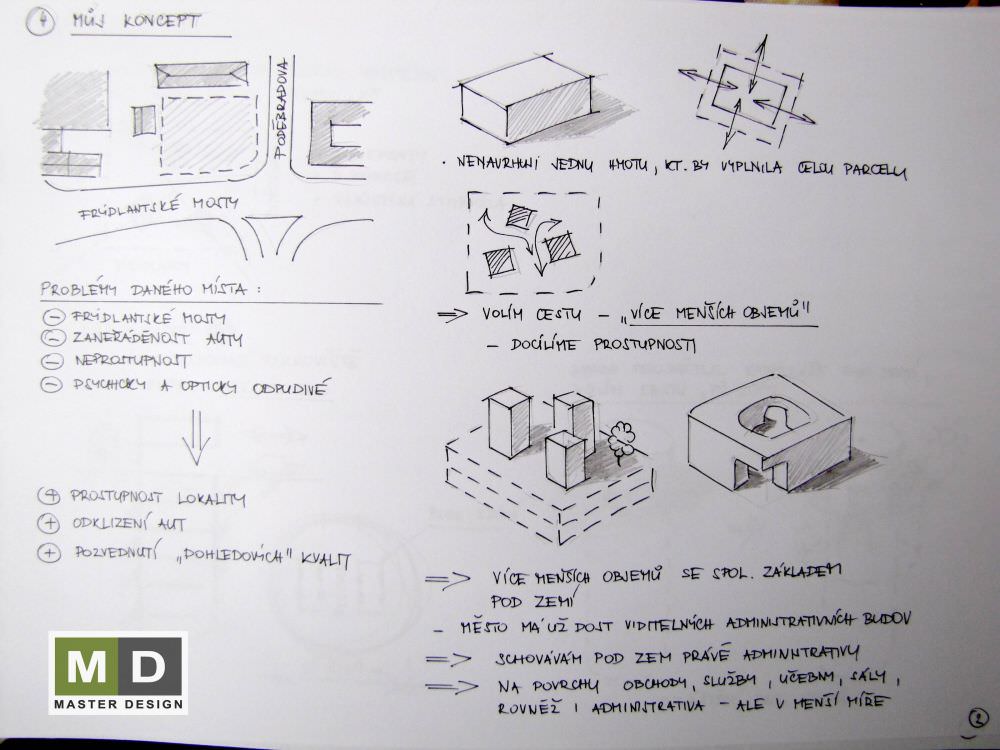 4 MŮJ KONCEPT
PODĚBRADOVA
FRÝDLANTSKÉ MOSTY
PROBLÉMY DANÉHO MÍSTA :
- FRÝDLANTSKÉ MOSTY
- ZANEŘÁDĚNOST AUTY
- NEPROSTUPNOST
- PSYCHICKY A OPTICKY ODPUDIVÉ
+ PROSTUPNOST LOKALITY
+ ODKLIZENÍ AUT
+ POZVEDNUTÍ „DOHLEDOVÍCH" KVALIT
· NENAVRHUNI JEDNU HMOTU, KT. BY VYPLNILA CELOU PARCELU
⇒ VOLÍM CESTU – „VÍCE MENŠÍCH OBJEMŮ"
– DOCÍLÍME PROSTUPNOSTI
⇒ VÍCE MENŠÍCH OBJEMŮ SE SPOL. ZÁKLADEM
POD ZEMÍ
– MĚSTO MÁ UŽ DOST VIDITELNÝCH ADMINISTRATIVNÍCH BUDOV
⇒ SCHOVÁVÁM POD ZEM PRÁVĚ ADMINISTRATIVU
⇒ NA POVRCHU OBCHODY, SLUŽBY, UČEBNY, SÁLY,
ROVNĚŽ I ADMINISTRATIVA – ALE V MENŠÍ MÍŘE
2
MD
MASTER DESIGN